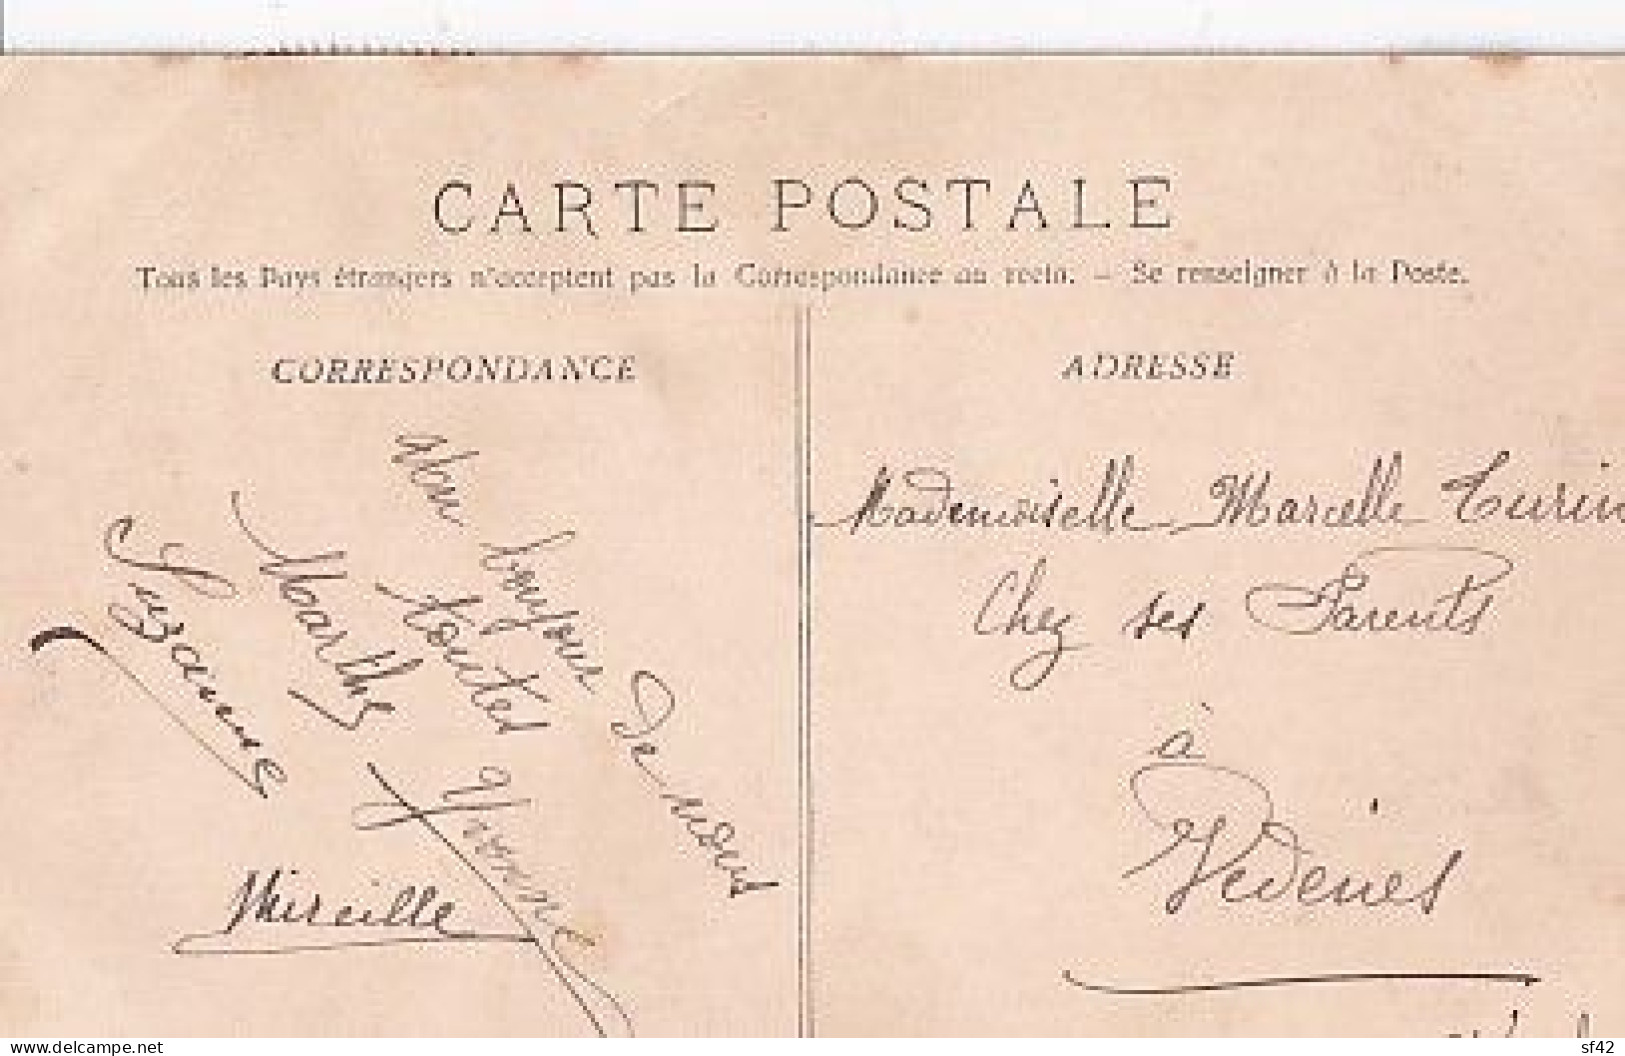 CARTE POSTALE
Tous les Pays étrangers n'acceptent pas la Correspondance au recto. — Se renseigner à la Poste.
CORRESPONDANCE
Mon bonjour de nous
toutes
Marthe Yvonne
Suzanne
Mireille
ADRESSE
Mademoiselle Marcelle Turin
Chez ses Parents
à
Vedènes
delcampe.net
sf42